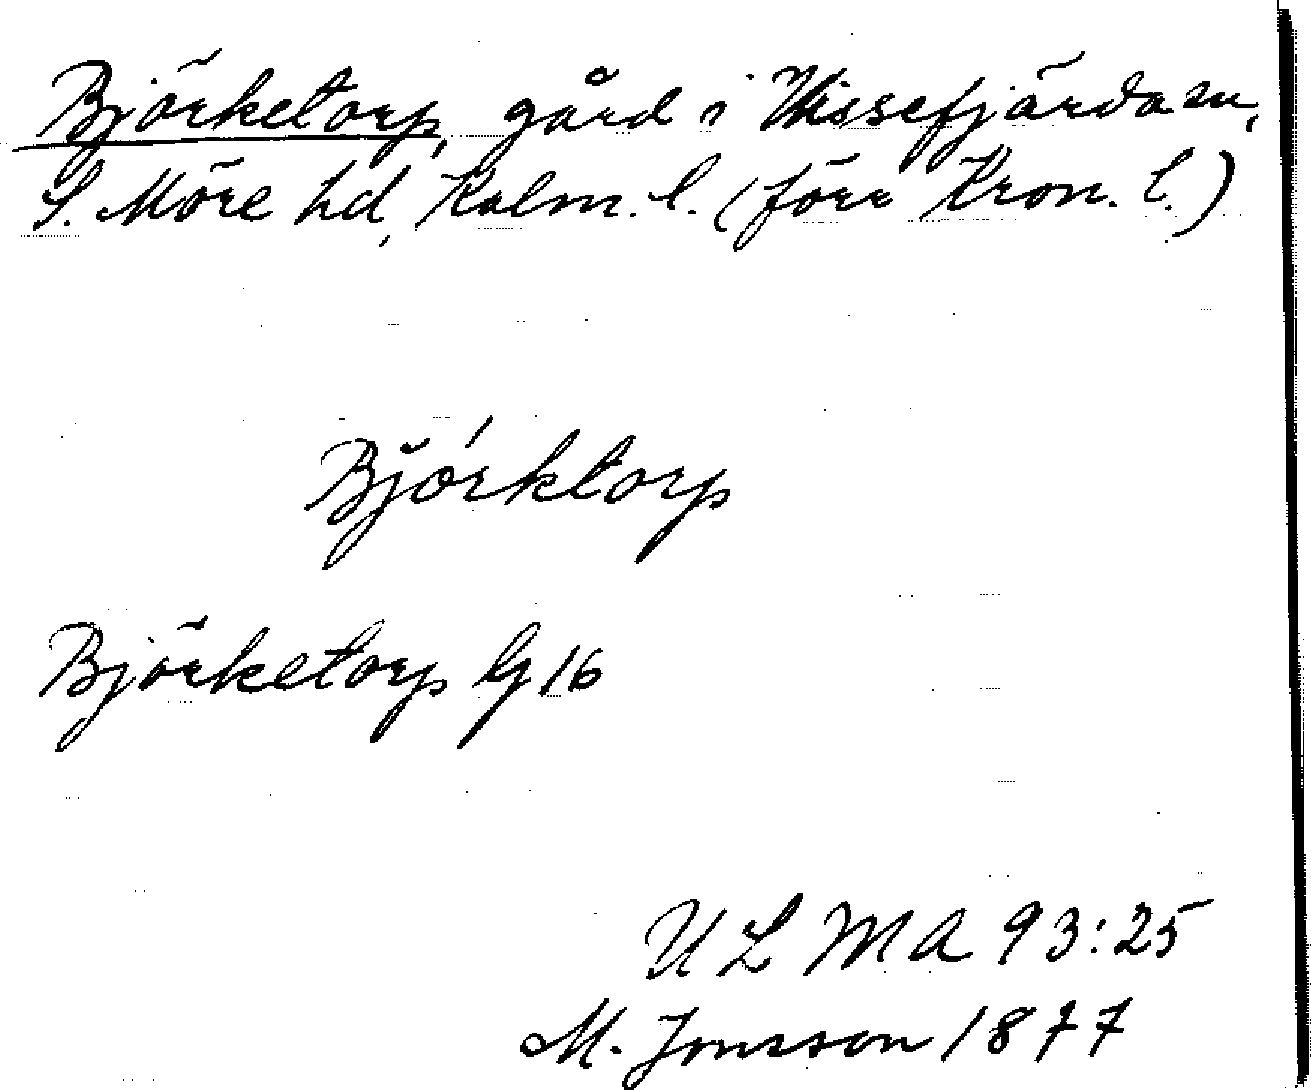 Björketorp, gård i Vissefjärda sn,
S. Möre hd, Kalm. l. (förr Kron. l.)
Björktorp
Björketorp Gg 16
ULMA 93:25
M. Jonsson 1877